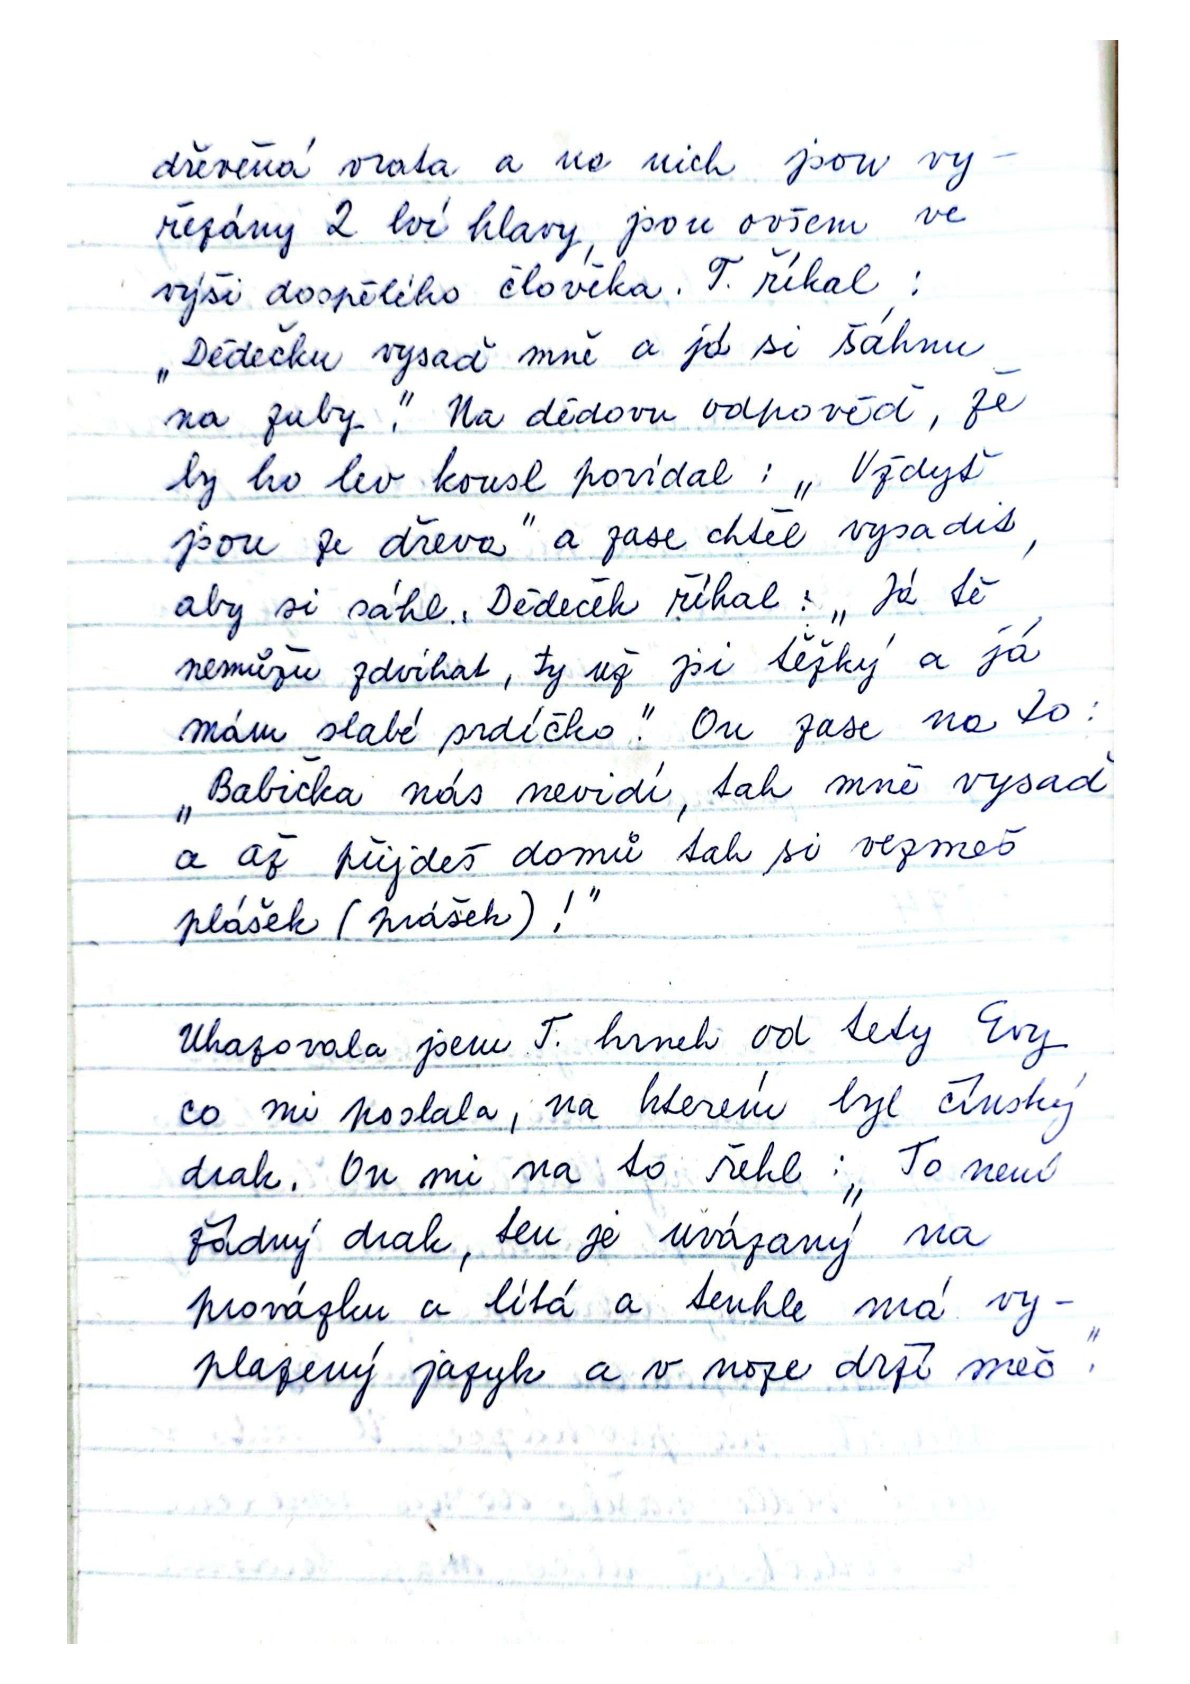 dřevěná vrata a na nich jsou vy-
řezány 2 lví hlavy, jsou ovšem ve
výši dospělého člověka. T. říkal :
„Dědečku vysaď mně a já si šáhnu
na zuby." Na dědovu odpověď, že
by ho lev kousl povídal : „Vždyť
jsou ze dřeva" a zase chtěl vysadit,
aby si sáhl. Dědeček říkal : „Já tě
nemůžu zdvihat, ty už jsi těžký a já
mám slabé srdíčko." On zase na to :
„Babička nás nevidí, tak mně vysaď
a až přijdeš domů tak si vezmeš
plášek (prášek)!"
Ukazovala jsem T. hrnek od tety Evy
co mi poslala, na kterém byl čínský
drak. On mi na to řekl : „To není
žádný drak, ten je uvázaný na
provázku a lítá a tenhle má vy-
plazený jazyk a v noze drží meč".